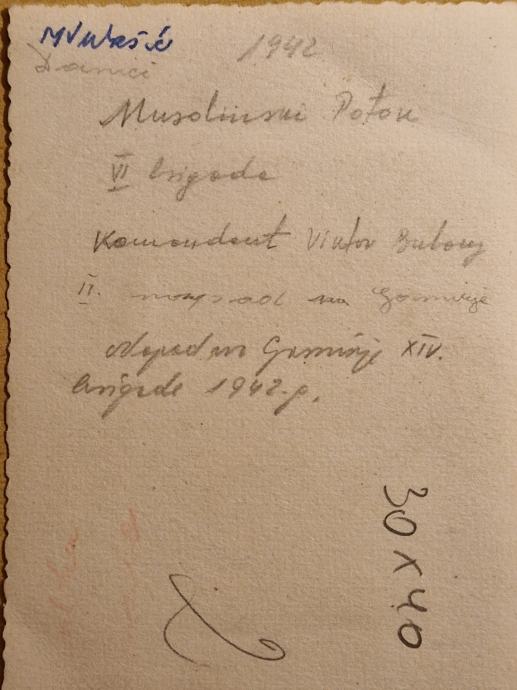 MVukašić 1942
Danici
Musolinski Potok
VI brigada
Komandant Viktor Bubanj
II. napad na Gomirje
Napad na Gomirje XIV.
brigade 1942.g.
30 x 40